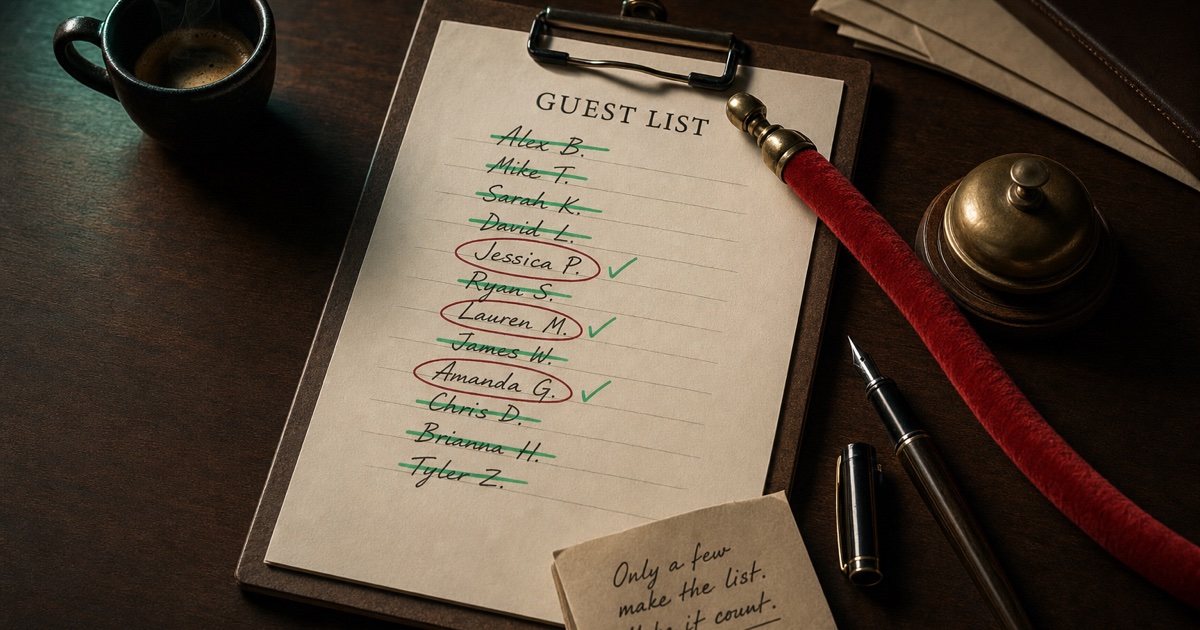 GUEST LIST
Alex B.
Mike T.
Sarah K.
David L.
Jessica P.
Ryan S.
Lauren M.
James W.
Amanda G.
Chris D.
Brianna H.
Tyler Z.
Only a few
make the list.
it count.